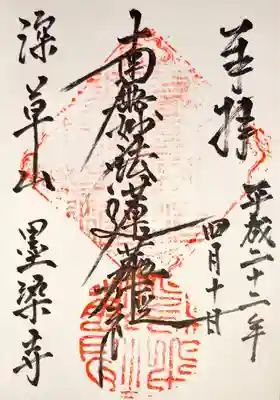 奉拝
平成二十二年
四月十日
南無妙法蓮華経
深草山 墨染寺